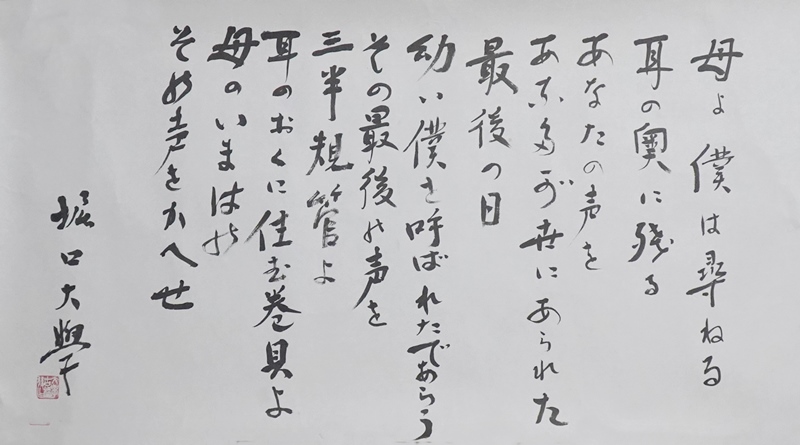 母よ 僕は尋ねる
耳の奥に残る
あなたの声を
あなたが世にあられた
最後の日
幼い僕を呼ばれたであらう
その最後の声を
三半規管よ
耳のおくに住む巻貝よ
母のいまはの
その声をかへせ
堀口大學